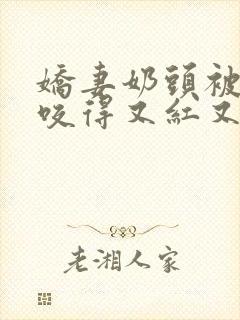 嬌妻奶頭被
咬得又紅又
老湘人家